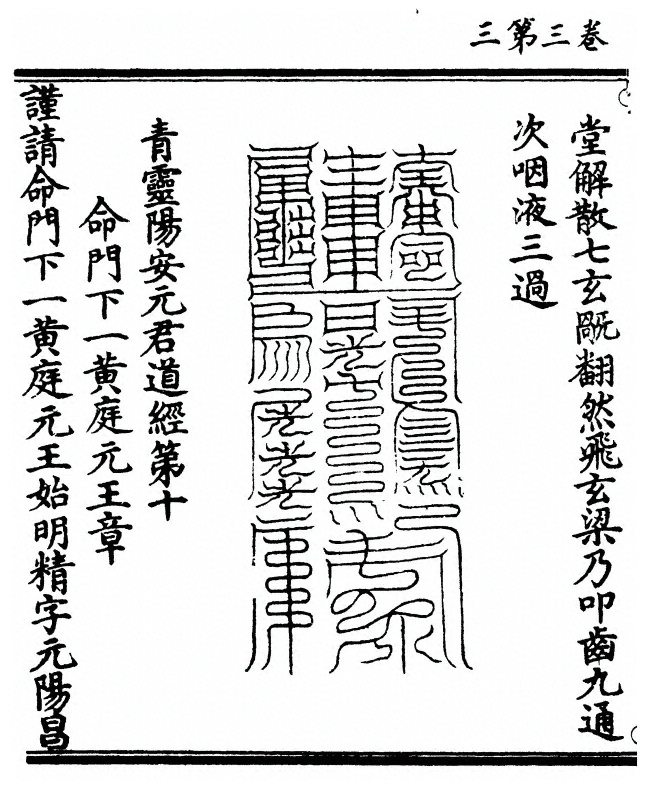 三第三卷
堂解散七玄翩然飛玄梁乃叩齒九通
次咽液三過
青靈陽安元君道經第十
命門下一黃庭元王章
謹請命門下一黃庭元王始明精字元陽昌